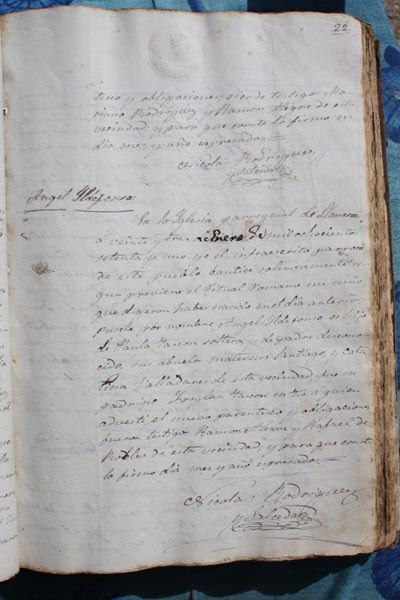 22
tesco y obligaciones siendo testigos Ma-
riano Rodriguez y Ramon Alegre de esta
vecindad, y para que conste lo firmo en
dia, mes, y año expresados =
Nicolas Rodriguez
y Salcedo
Angel Ildefonso.
En la Iglesia parroquial de Llamera
a veinte y tres de Enero de mil ochocientos
setenta y uno yo el infraescrito parroco
de este pueblo bautice solemnemente se-
gun previene el Ritual Romano un niño
que dijeron haber nacido en el dia anterior,
pusele por nombre Angel Ildefonso es hijo
de Paula Tascon soltera y de padre descono-
cido, sus abuelos maternos Santiago y Cata-
lina Valladares de esta vecindad, fue su
padrino Froylan Tascon su tio a quien
adverti el nuevo parentesco y obligaciones,
fueron testigos Ramon Alegre y Rafael de
Robles de esta vecindad, y para que conste
lo firmo dia mes y año expresados =
Nicolas Rodriguez
y Salcedo